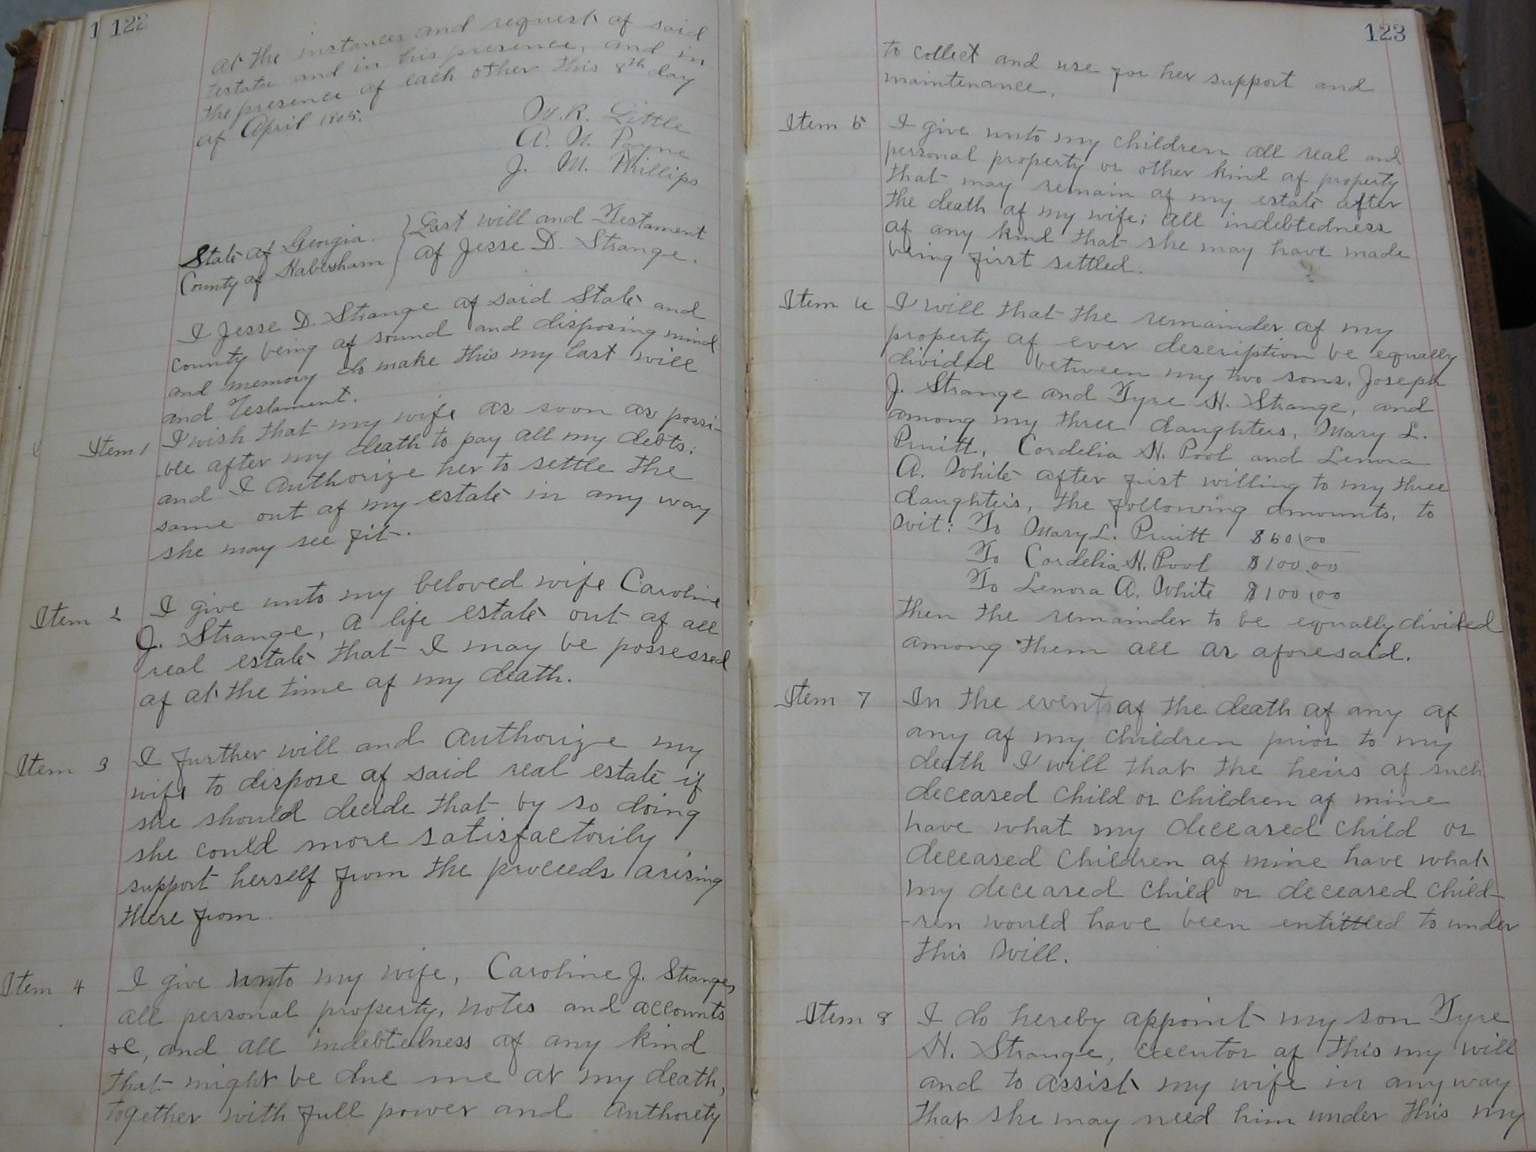 1 122
at the instance and request of said
testator and in his presence, and in
the presence of each other this 8th day
of April
W. R. Little
A. N. Payne
J. M. Phillips
State of Georgia. } Last will and Testament
County of Habersham } of Jesse D. Strange.
I Jesse D. Strange of said State and
county being of sound and disposing mind
and memory do make this my last will
and Testament.
Item 1 I wish that my wife as soon as possi-
ble after my death to pay all my debts;
and I authorize her to settle the
same out of my estate in any way
she may see fit.
Item 2 I give unto my beloved wife Caroline
J. Strange, a life estate out of all
real estate that I may be possessed
of at the time of my death.
Item 3 I further will and authorize my
wife to dispose of said real estate if
she should decide that by so doing
she could more satisfactorily
support herself from the proceeds arising
there from.
Item 4 I give unto my wife, Caroline J. Strange,
all personal property, notes and accounts
&c, and all indebtedness of any kind
that might be due me at my death,
together with full power and authorety
123
to collect and use for her support and
maintenance.
Item 5 I give unto my children all real and
personal property or other kind of property
that may remain of my estate after
the death of my wife; all indebtedness
of any kind that she may have made
being first settled.
Item 6 I will that the remainder of my
property of ever description be equally
divided between my two sons, Joseph
J. Strange and Tyre H. Strange, and
among my three daughters, Mary L.
Pruitt, Cordelia H. Pool and Lenora
A. White after first willing to my three
daughters, the following amounts, to
wit: To Mary L. Pruitt $60.00
To Cordelia H. Pool $100.00
To Lenora A. White $100.00
then the remainder to be equally divided
among them all as aforesaid.
Item 7 In the event of the death of any of
any of my children prior to my
death I will that the heirs of such
deceased child or children of mine
have what my deceased child or
deceased children of mine have what
my deceased child or deceased child-
-ren would have been entittled to under
this Will.
Item 8 I do hereby appoint my son Tyre
H. Strange, executor of this my will
and to assist my wife in any way
that she may need him under this my